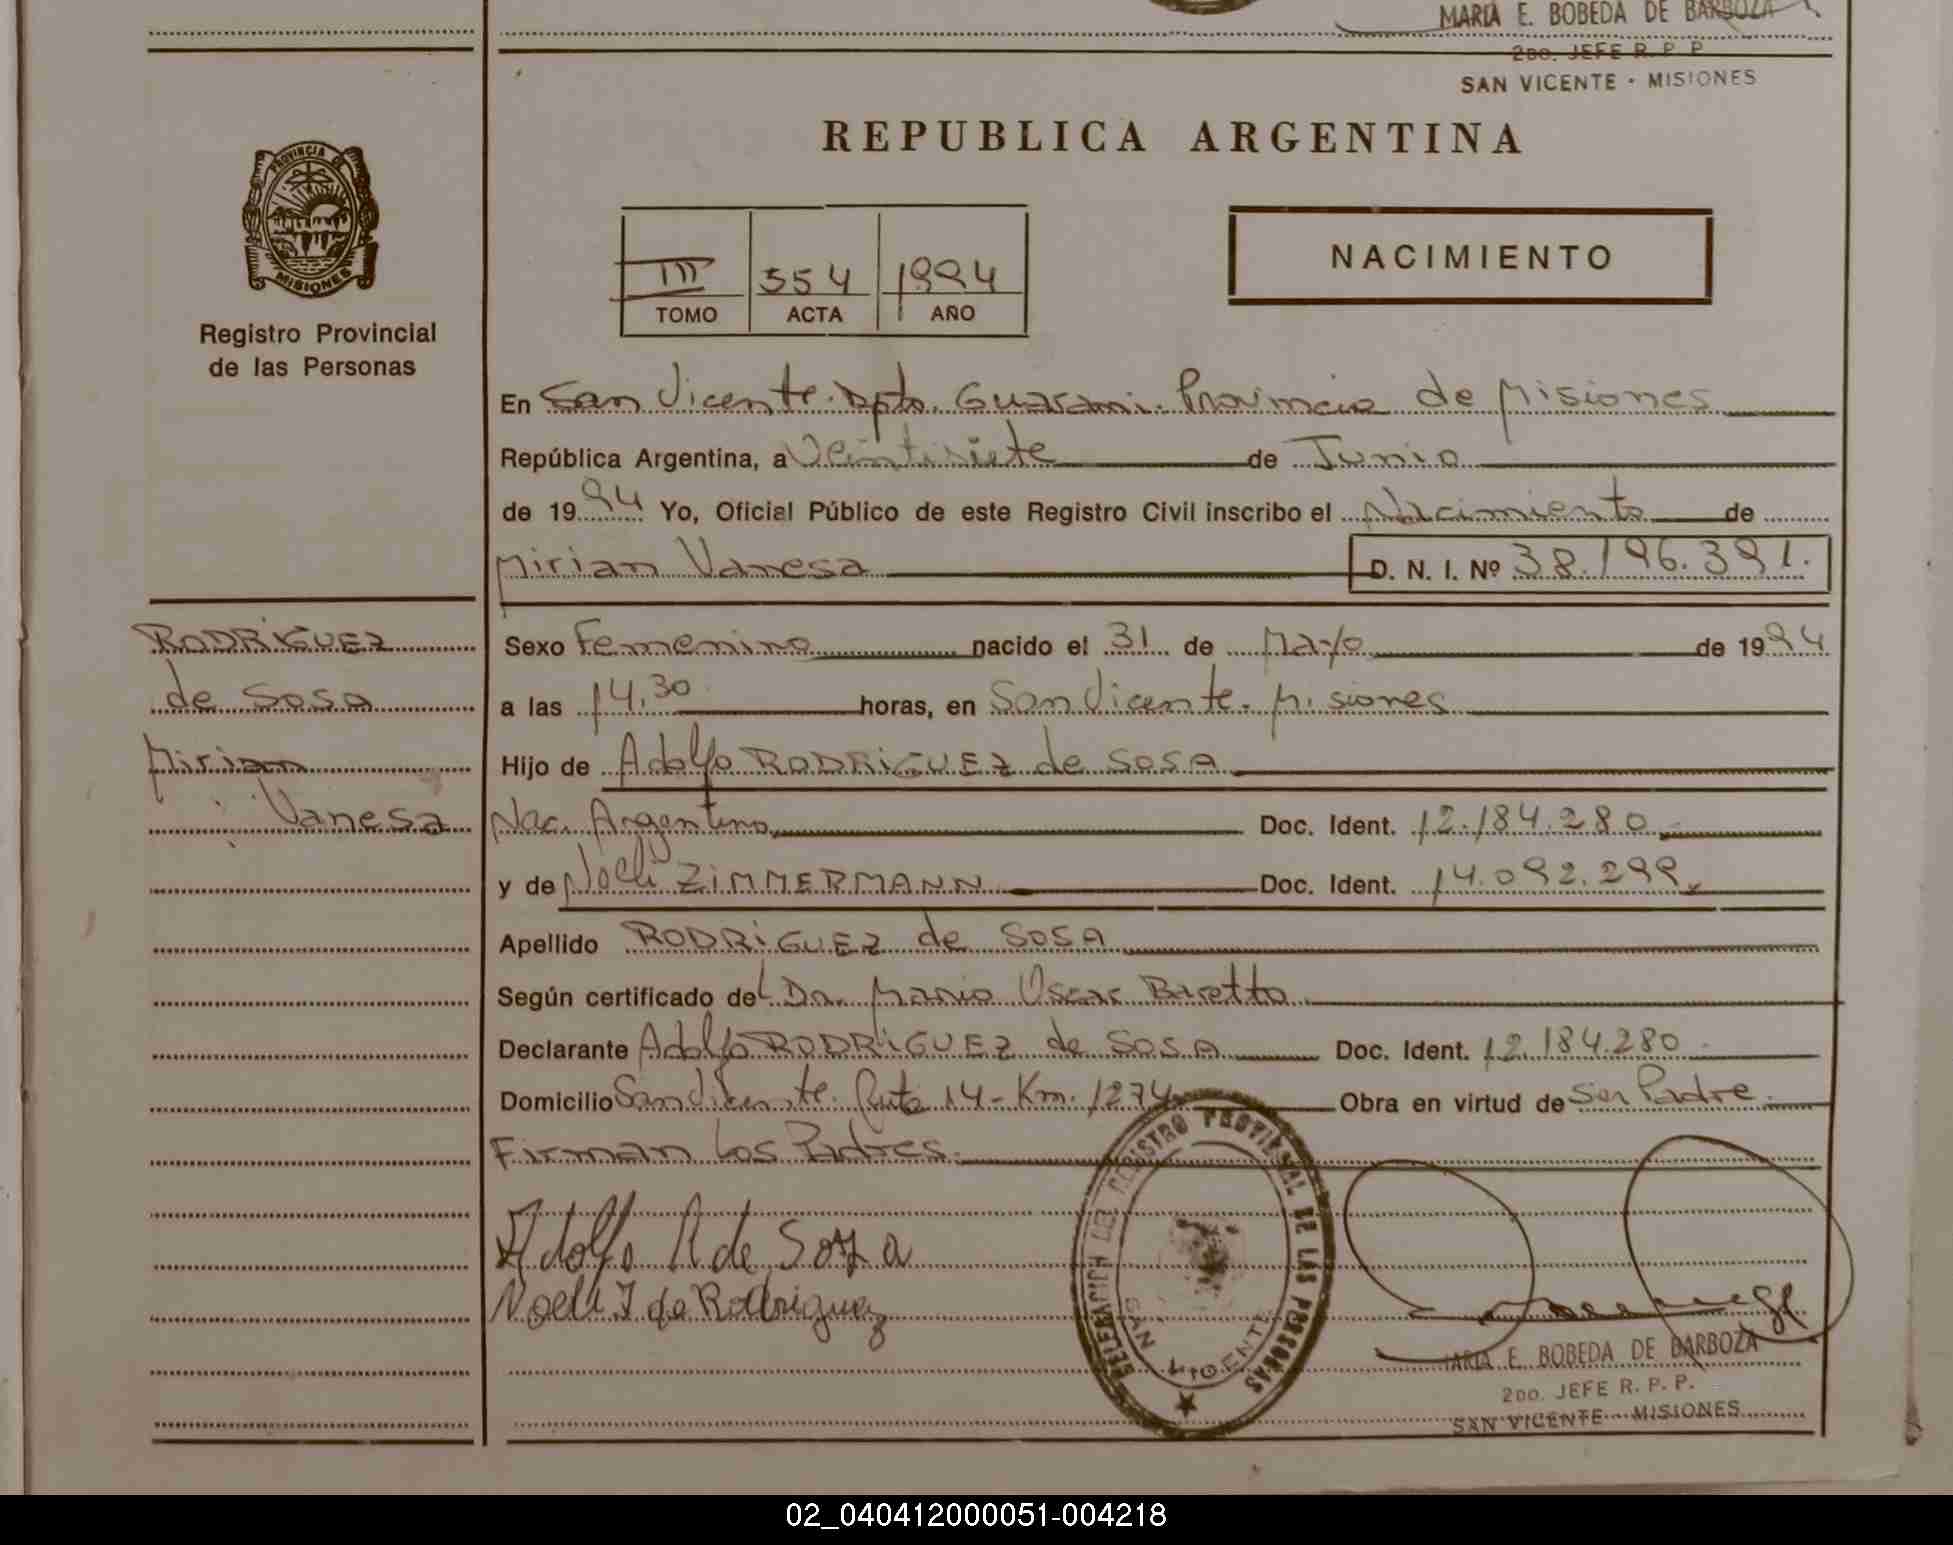 MARIA E. BOBEDA DE BARBOZA
2DO. JEFE R. P. P.
SAN VICENTE - MISIONES
REPUBLICA ARGENTINA
PROVINCIA DE
MISIONES
Registro Provincial
de las Personas
III 554 1994
TOMO ACTA AÑO
NACIMIENTO
En San Vicente. Dpto. Guarani. Provincia de Misiones
República Argentina, a Veintisiete de Junio
de 1994 Yo, Oficial Público de este Registro Civil inscribo el Nacimiento de
Mirian Vanesa D. N. I. Nº 38.196.391.
RODRIGUEZ
de SOSA
Mirian
Vanesa
Sexo Femenino nacido el 31 de Mayo de 1994
a las 14,30 horas, en San Vicente. Misiones
Hijo de Adolfo RODRIGUEZ de SOSA
Nac. Argentino Doc. Ident. 12.184.280
y de Noeli ZIMMERMANN Doc. Ident. 14.092.299
Apellido RODRIGUEZ de SOSA
Según certificado del Dr. Mario Oscar Baretto
Declarante Adolfo RODRIGUEZ de SOSA Doc. Ident. 12.184.280
Domicilio San Vicente. Ruta 14 - Km. 1274 Obra en virtud de Ser Padre.
Firman los Padres.
Adolfo R de Sosa
Noeli Z de Rodriguez
DELEGACION DEL REGISTRO PROVINCIAL DE LAS PERSONAS
SAN VICENTE
MARIA E. BOBEDA DE BARBOZA
2DO. JEFE R. P. P.
SAN VICENTE - MISIONES
02_040412000051-004218